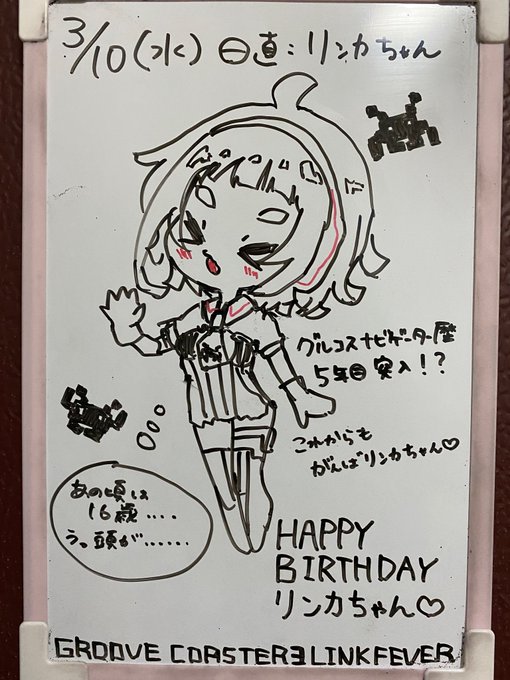 3/10(水) 日直:リンカちゃん
グルコスナビゲーター歴
5年目突入!?
これからも
がんばリンカちゃん♡
あの頃は
16歳....
うっ頭が......
HAPPY
BIRTHDAY
リンカちゃん♡
GROOVE COASTER3LINKFEVER